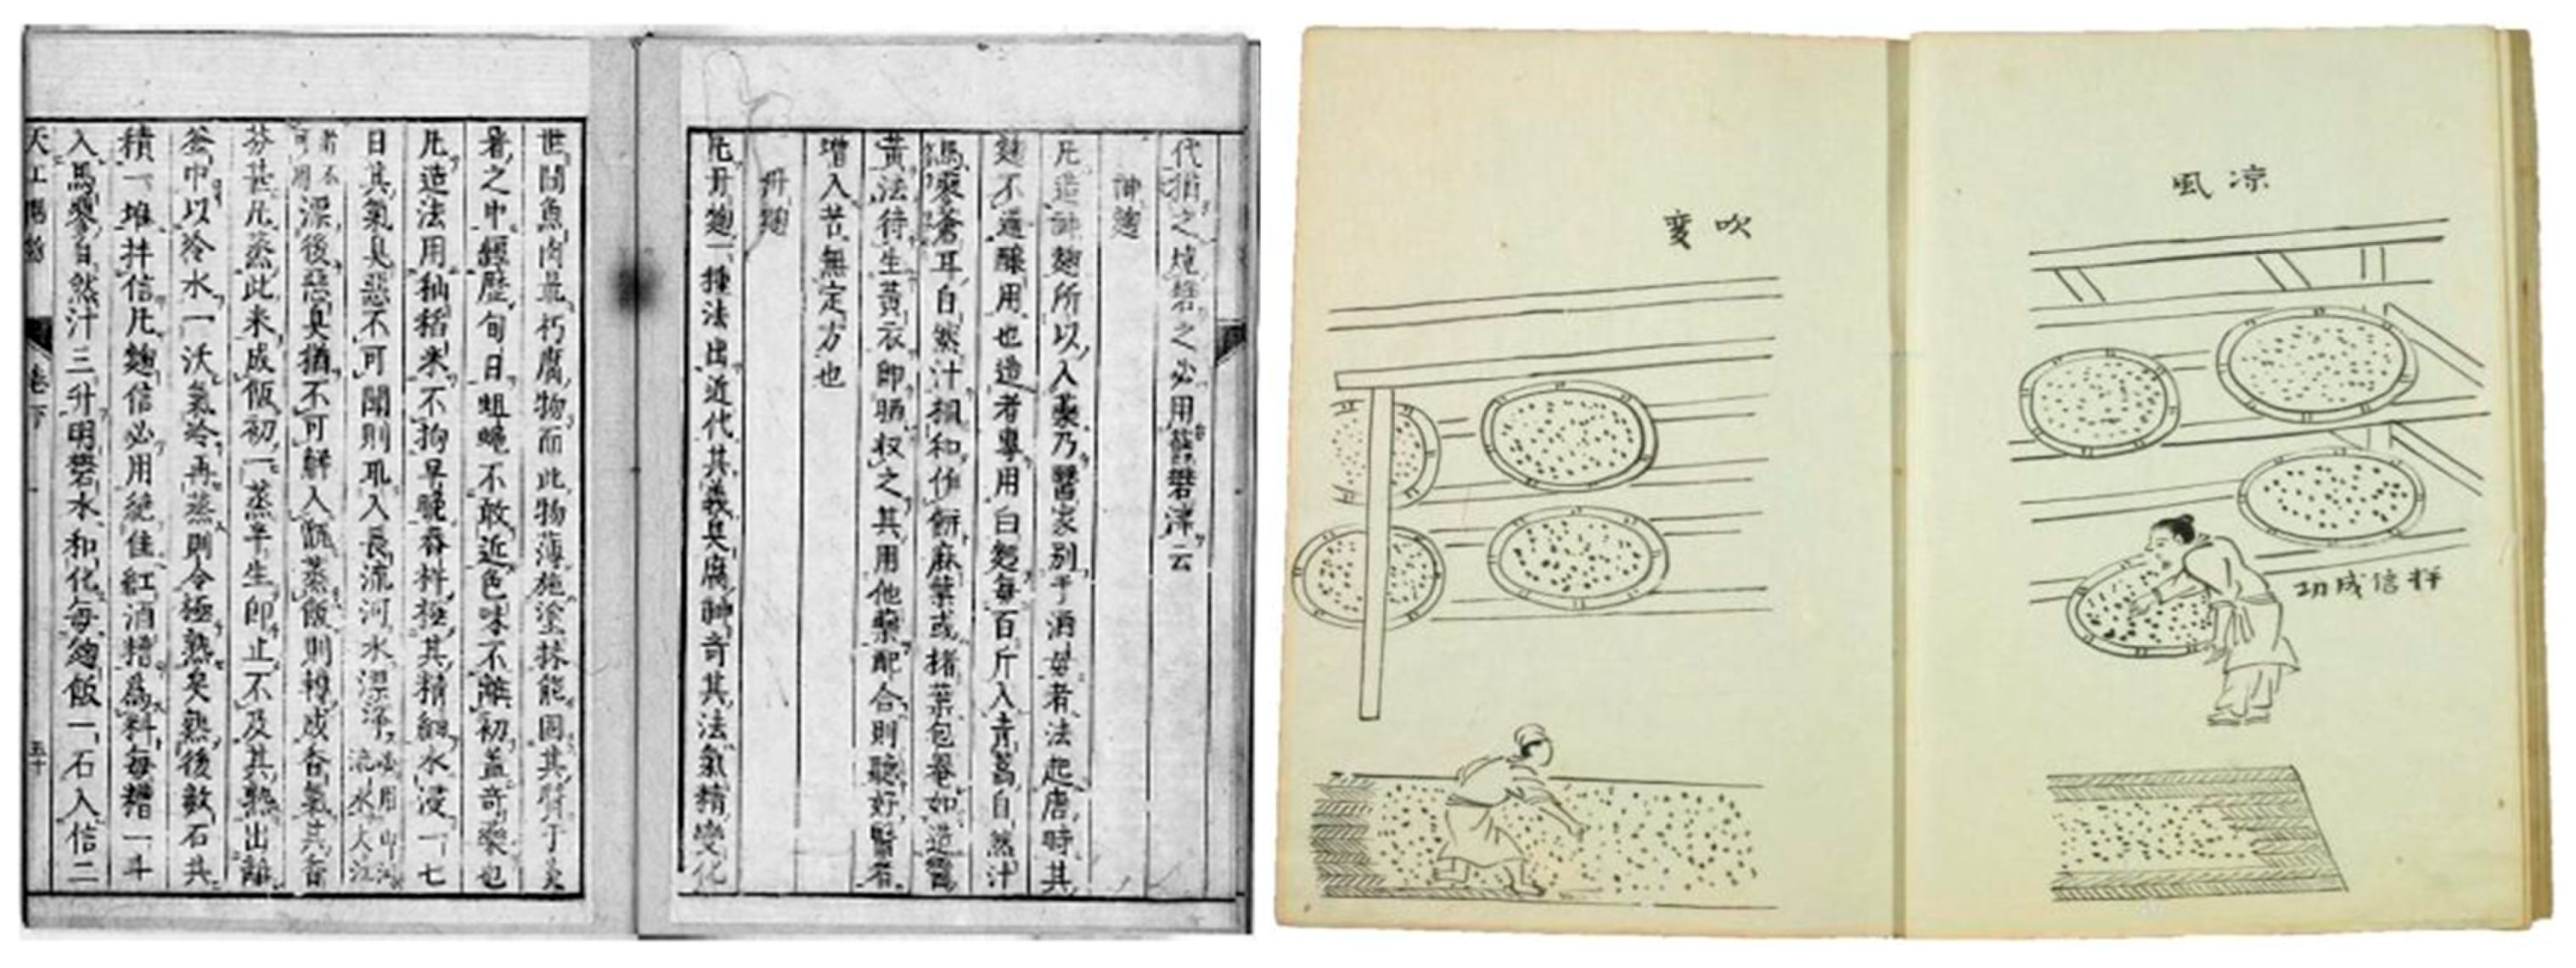 代猶之燒礬之必用舊礬滓云
神麯
凡造神麯所以入藥乃醫家別于酒母者法起唐時其
麯不通釀用也造者專用白麪每百斤入青蒿自然汁
馬蓼蒼耳自然汁相和作餅麻葉或楮葉包罨如造醬
黃法待生黃衣即晒収之其用他藥配合則聽好醫者
增入苦無定方也
丹麯
凡丹麯一種法出近代其義臭腐神奇其法氣精變化
世間魚肉最朽腐物而此物薄施塗抹能固其質于炎
暑之中經歷旬日蛆蠅不敢近色味不離初蓋奇藥也
凡造法用秈稻米不拘早晚舂杵極其精細水浸一七
日其氣臭惡不可聞則取入長流河水漂淨必用山河流水大江
者不可用漂後惡臭猶不可解入甑蒸飯則轉成香氣其香
芬甚凡蒸此米成飯初一蒸半生即止不及其熟出離
釜中以冷水一沃氣冷再蒸則令極熟矣熟後數石共
積一堆拌信凡麯信必用絕佳紅酒糟爲料每糟一斗
入馬蓼自然汁三升明礬水和化每麯飯一石入信二
天工開物 卷下 五十
凉風
拌信成功
吹變